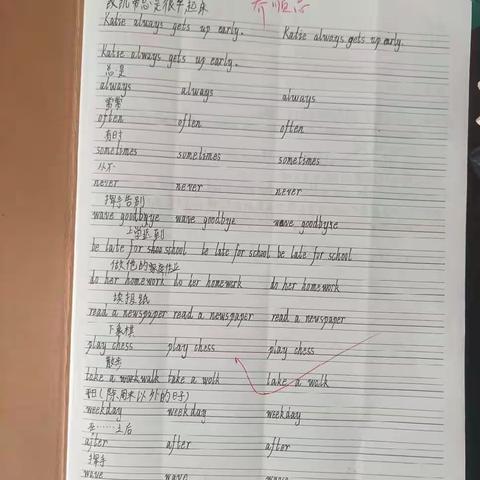 是很早起床
Katie always gets up early. Katie always gets up early.
Katie always gets up early.
总是
always always always
常常
often often often
有时
sometimes sometimes sometimes
从不
never never never
挥手告别
wave goodbye wave goodbye wave goodbye
上学迟到
be late for school be late for school be late for school
做他的家庭作业
do her homework do her homework do her homework
读报纸
read a newspaper read a newspaper read a newspaper
下象棋
play chess play chess play chess
散步
take a walk take a walk take a walk
平日(除周末以外的日子)
weekday weekday weekday
在……之后
after after after
挥手
wave wave wave